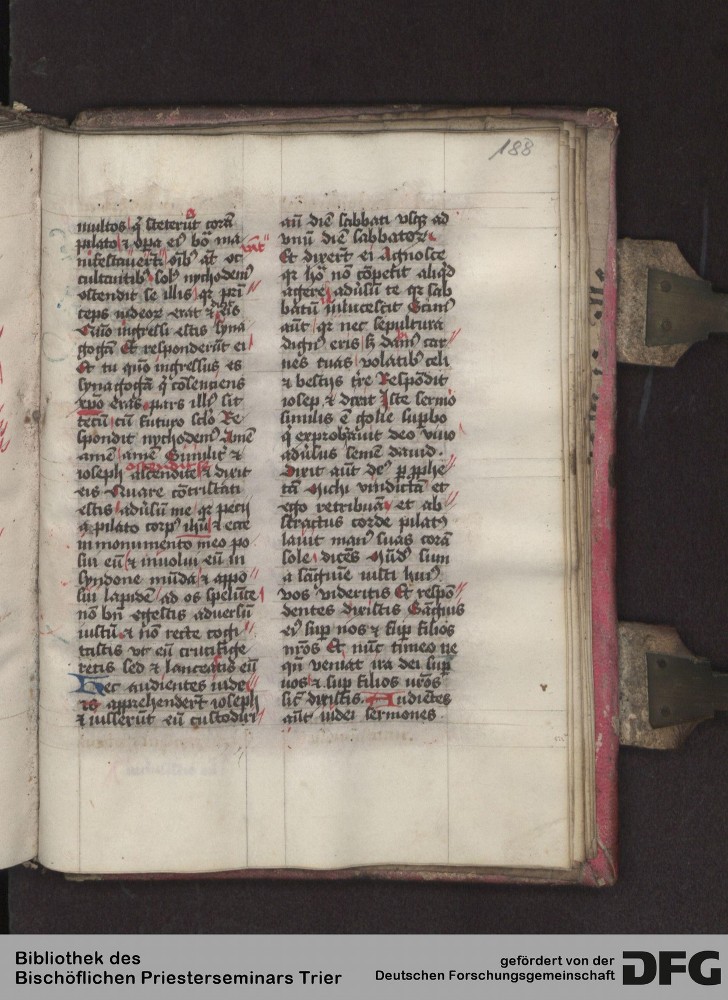 188
multos q̄ steterūt corā
pilato ⁊ oꝑa eiꝰ bōa ma
nifestauerūt oīb₉ aūt oc
cultantib₉ solꝰ nychodemꝰ
ostendit se illis qꝛ prī
ceps iudeoꝝ erat ⁊ dixit
Quō ingressi estis syna
gogā Et responderūt ei
Et tu quō ingressus es
synagogā q̄ cōsenciens
xp̄o eras pars illiꝰ sit
tecū ī futuro sclō Re
spondit nychodemꝰ Amē
amē amē Similit̄ ⁊
ioseph ascendit
ostendit se ⁊ dixit
eis Quare cōtristati
estis adūsū me qꝛ pecij
a pilato corpꝰ ihū ⁊ ecce
in monumento meo po
sui eū ⁊ inuolui eū in
syndone mūda ⁊ appo
sui lapidē ad os spelūce
nō bn̄ egistis aduersū
iustū ⁊ nō recte cogi
tastis vt eū crucifige
retis sed ⁊ lanceatis eū
Hec audientes iude
i apprehenderūt ioseph
⁊ iusserūt eū custodiri
an̄ diē sabbati vsqꝫ ad
vnū diē sabbatoꝝ
Et dixerūt ei Agnosce
qꝛ hō nō cōpetit aliqd
agere adūsū te qꝛ sab
batū illucescit Scimꝰ
aūt qꝛ nec sepultura
dignꝰ eris s̄ dabimꝰ car
nes tuas volatib₉ celi
⁊ bestijs tre Respōdit
iosep ⁊ dixit Iste sermo
similis ē golie supbo
q̄ exprobrauit deo viuo
adūsus semē dauid
Dixit aūt deꝰ ꝑ ꝓphe
tā Michi vindictā et
ego retribuā et ab
stractus corde pilatꝰ
lauit manꝰ suas corā
sole dicēs Mūdꝰ sum
a sāguīe iusti huiꝰ
vos videritis Et respō
dentes dixistis Sāguis
eiꝰ sup nos ⁊ sup filios
nr̄os Et nūc timeo ne
qn̄ veniat ira dei sup
uos ⁊ sup filios vr̄os
sic̄ dixistis Audiētes
aūt iudei sermones
Bibliothek des
Bischöflichen Priesterseminars Trier
gefördert von der
Deutschen Forschungsgemeinschaft
DFG